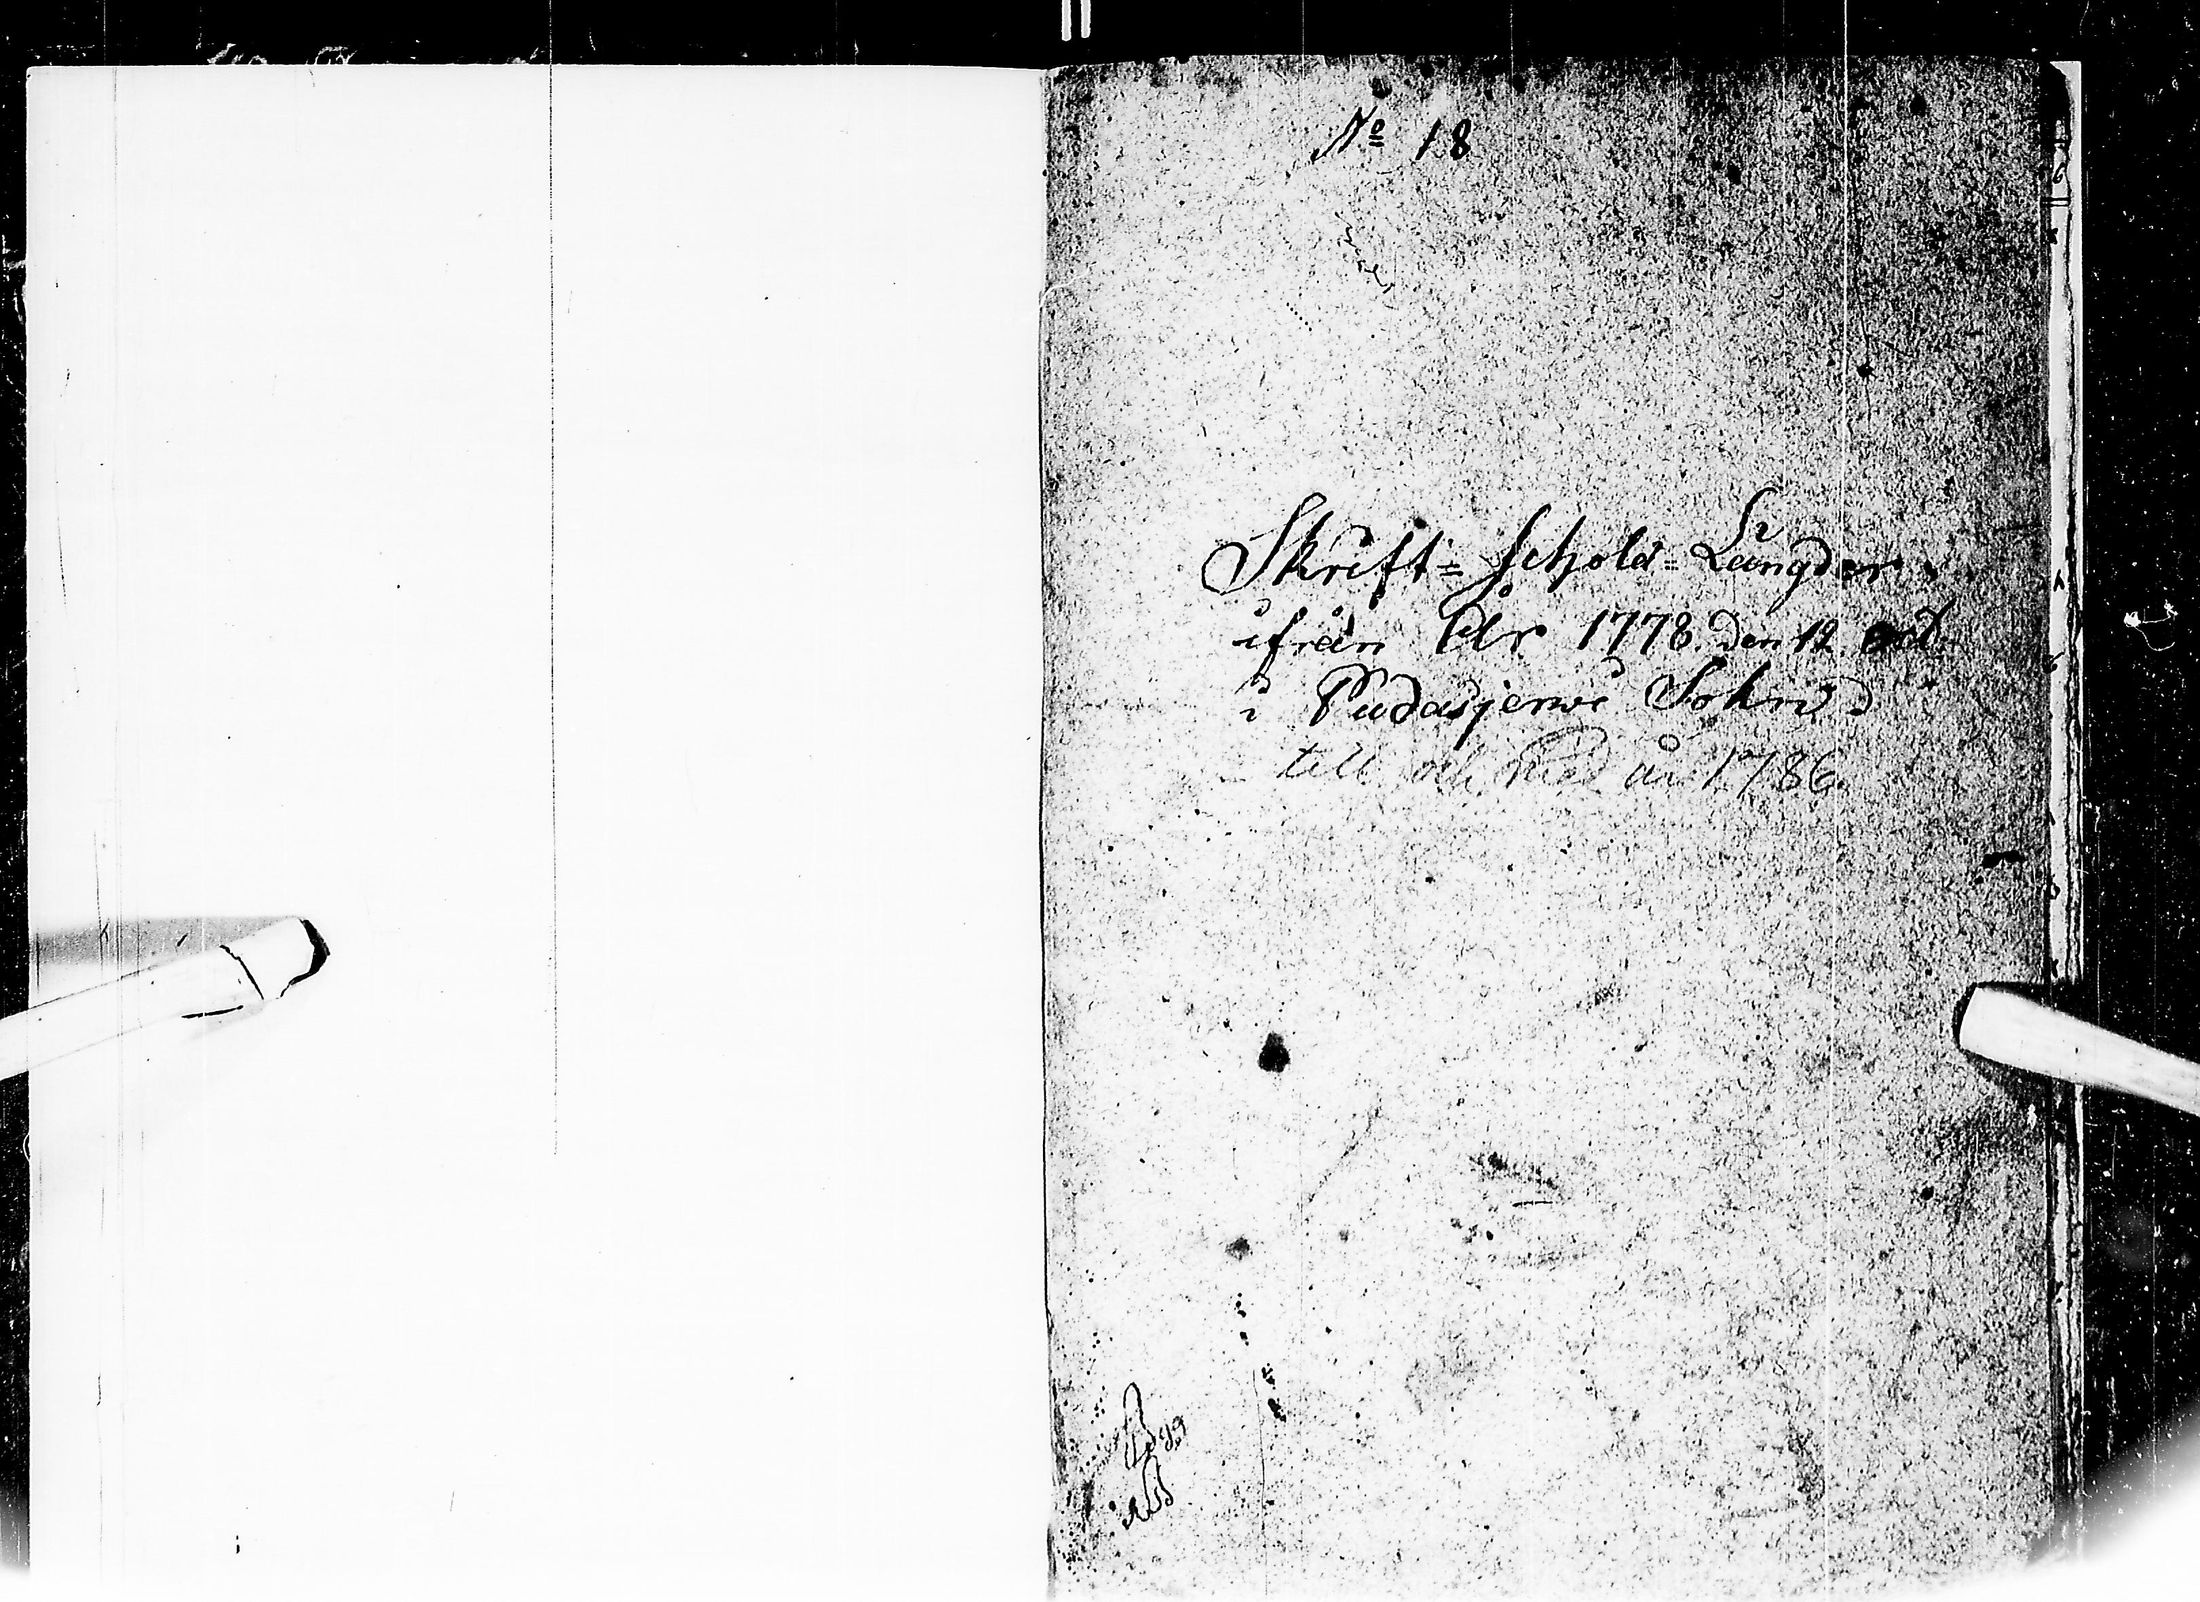 No 18
Skrift= schola= Längder
ifrån Åhr 1778. den 12. oct.
i Pudasjerwi Sokn
till och med år 1786.